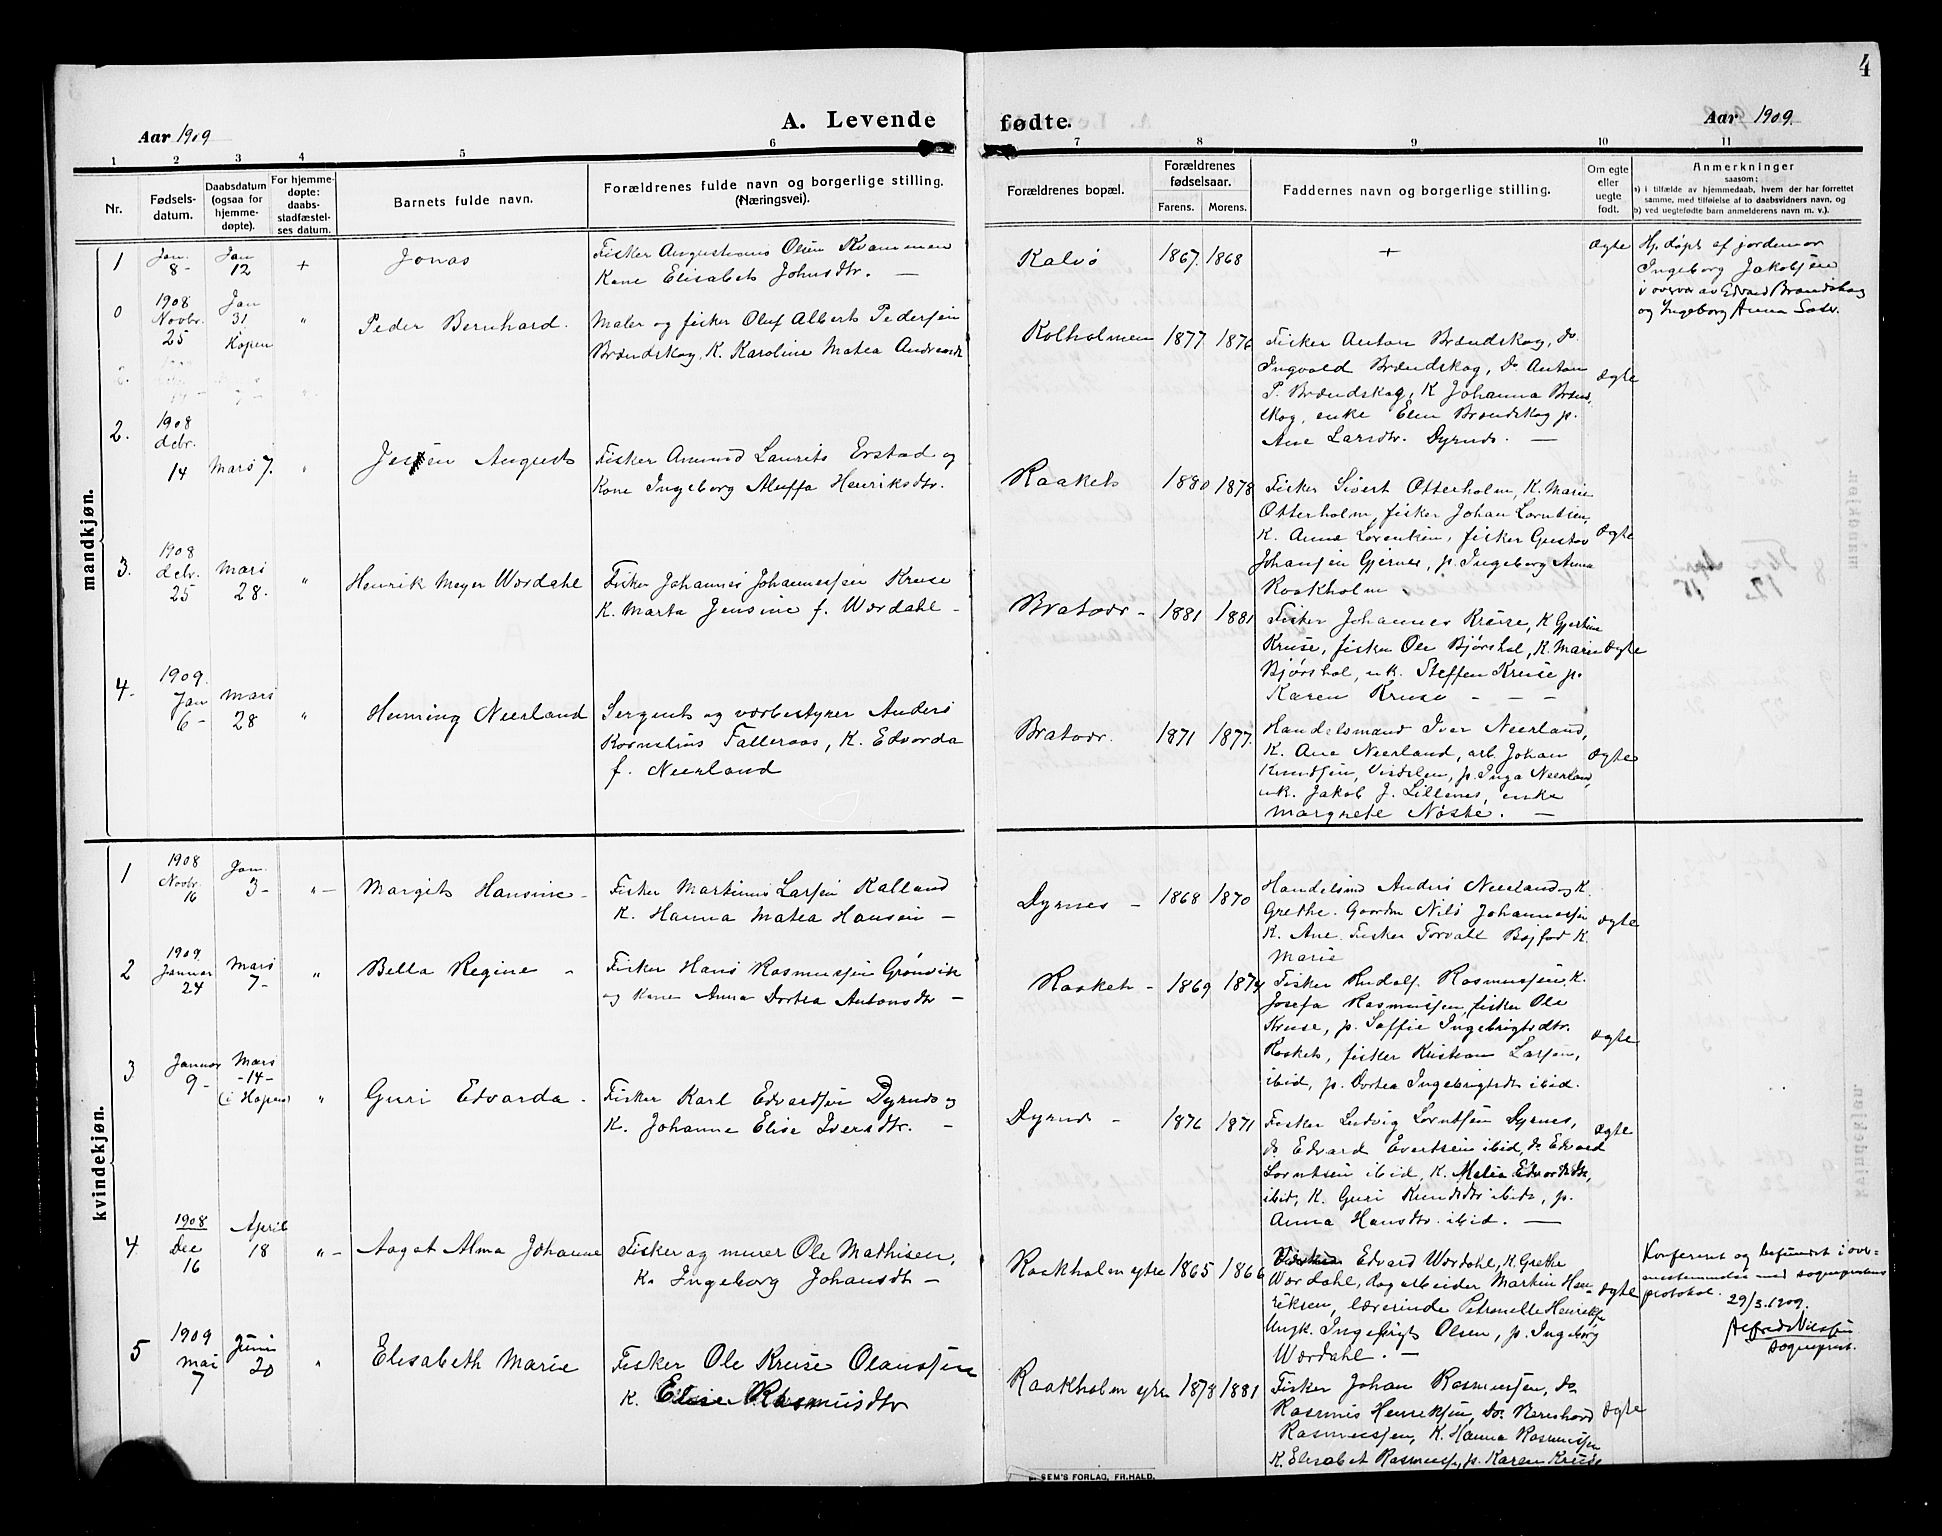 4
Aar 1909
A. Levende
fødte.
Aar 1909.
1 2 3 4 5 6 7 8 9 10 11
Nr.
Fødsels-
datum.
Daabsdatum
(ogsaa for
hjemme-
døpte).
For hjemme-
døpte:
daabs-
stadfæstel-
ses datum.
Barnets fulde navn.
Forældrenes fulde navn og borgerlige stilling.
(Næringsvei).
Forældrenes bopæl.
Forældrenes
fødselsaar.
Farens. Morens.
Faddernes navn og borgerlige stilling.
Om egte
eller
uegte
født.
Anmerkninger
saasom:
a) i tilfælde av hjemmedaab, hvem der har forrettet
samme, med tilføielse af to daabsvidners navn, og
b) ved uegtefødte barn anmelderens navn m. v.).
mandkjøn.
1
Jan.
8-
Jan
12
+
Jonas
Fisker Augustinus Olsen Kvammen
Kone Elisabet Johnsdtr. —
Kalvø
1867. 1868
+
ægte
Hj. døpt af jordemor
Ingeborg Jakobsen
i overvær av Edvard Brændskog
og Ingeborg Anna
0
1908
Novbr.
25
Jan
31
Hopen
"
Peder Bernhard.
Maler og fisker Oluf Albert Pedersen
Brændskog, K. Karoline Matea Andreasdt
Kolholmen
1877 1876
Fisker Anton Brændskog, do
Ingvald Brændskog, Do Anton
P. Brændskog, K Johanna Brænd,
skog, enke Elen Brændskog p.
Ane Larsdtr. Dyrnes. —
ægte
2.
1908
debr.
14
Mars 7.
"
Jensen August
Fisker Amund Laurits Erstad og
Kone Ingeborg Aluffa Henriksdtr.
Raaket
1880 1878
Fisker Sivert Otterholm, K. Marie
Otterholm, fisker Johan Lorntsen,
K. Anna Lorentsen, fisker Gustav
Johansen Gjernes, p. Ingeborg Anna
Raakholm
ægte
3.
1908
debr.
25
Mars
28.
"
Henrik Meyer Wordahl
Fisker Johannes Johannessen Kruse
K. Marta Jensine f. Wordahl -
Bratvær -
1881 1881
Fisker Johannes Kruse, K Gjertine
Kruse, fisker Ole Bjørshol, K. Marie
Bjørshol, u.k. Steffen Kruse p.
Karen Kruse - - -
ægte
4.
1909.
Jan
6-
Mars
28
"
Henning Neerland
Sergent og værbestyrer Anders
Kornelius Talleraas, K. Edvarda
f. Neerland
Bratvær.
1871 1877.
Handelsmand Iver Neerland,
K. Ane Neerland, arb. Johan
Knudsen, Visdalen, p. Inga Neerland,
u.k. Jakob J. Lillenes, enke
Margrete Nøske. —
ægte
kvindekjøn.
1
1908
Novbr.
16
Jan.
3-
"-
Margit Hansine -
Fisker Martinus Larsen Kalland
K. Hanna Matea Hansen -
Dyrnes -
1868 1870
Handelsmd Anders Neerland, K.
Grethe. Gaardm Nils Johannessen
K. Ane. Fisker Torvald K.
Marie
ægte
2
1909.
Januar
24
Mars
7-
"
Bella Regine -
Fisker Hans Rasmussen Grønvik
og Kone Anna Dortea Antonsdtr -
Raaket -
1869 1874
Fisker Rudolf Rasmussen, K.
Josefa Rasmussen, fisker Ole
Kruse, p. Soffie Ingebrigtsdtr.
Raaket, fisker Kristian Larsen,
ibid, p. Dortea Ingebrigtsdt ibid.
ægte
3
Januar
9-
Mars
-14-
(i Hopen)
"
Guri Edvarda -
Fisker Karl Edvardsen Dyrnes og
K. Johanne Elise Iversdtr. -
Dyrnes -
1876 1871
Fisker Ludvig Lorntsen Dyrnes,
do Edvard Evertsen ibid, do Edvard
Lorntsen ibid, K. Malia Edvardsdtr,
ibid, K. Guri Knudsdtr ibid, p.
Anna Hansdtr. ibid. —
ægte
4.
1908
Dec
16
April
18
"-
Aagot Alma Johanne
Fisker og murer Ole Mathisen,
K. Ingeborg Johansdtr -
Raakholm ytre
1865 1866
Edvard Wordahl, K. Grethe
Wordahl, dagarbeider Martin Hen-
riksen, lærerinde Petronelle Henriksen
Ungk. Ingebrigt Olsen, p. Ingeborg
Wordahl. —
ægte
Konfereret og befundet i over-
ensstemmelse med sogneprestens
protokol.
29/3. 1909.
Alfred Nilssen
sogneprest.
5
1909
mai
7
Juni
20
"
Elisabeth Marie
Fisker Ole Kruse Olaussen
K. Elise Rasmusdtr
Raakholm ytre
1878 1881
Fisker Johan Rasmussen, do
Rasmus Henriksen, do. Bernhard
Rasmussen, K. Hanna Rasmussen
K. Elisabet Rasmussen, p. Karen Kruse
ægte
SEM'S FORLAG, FR.HALD.